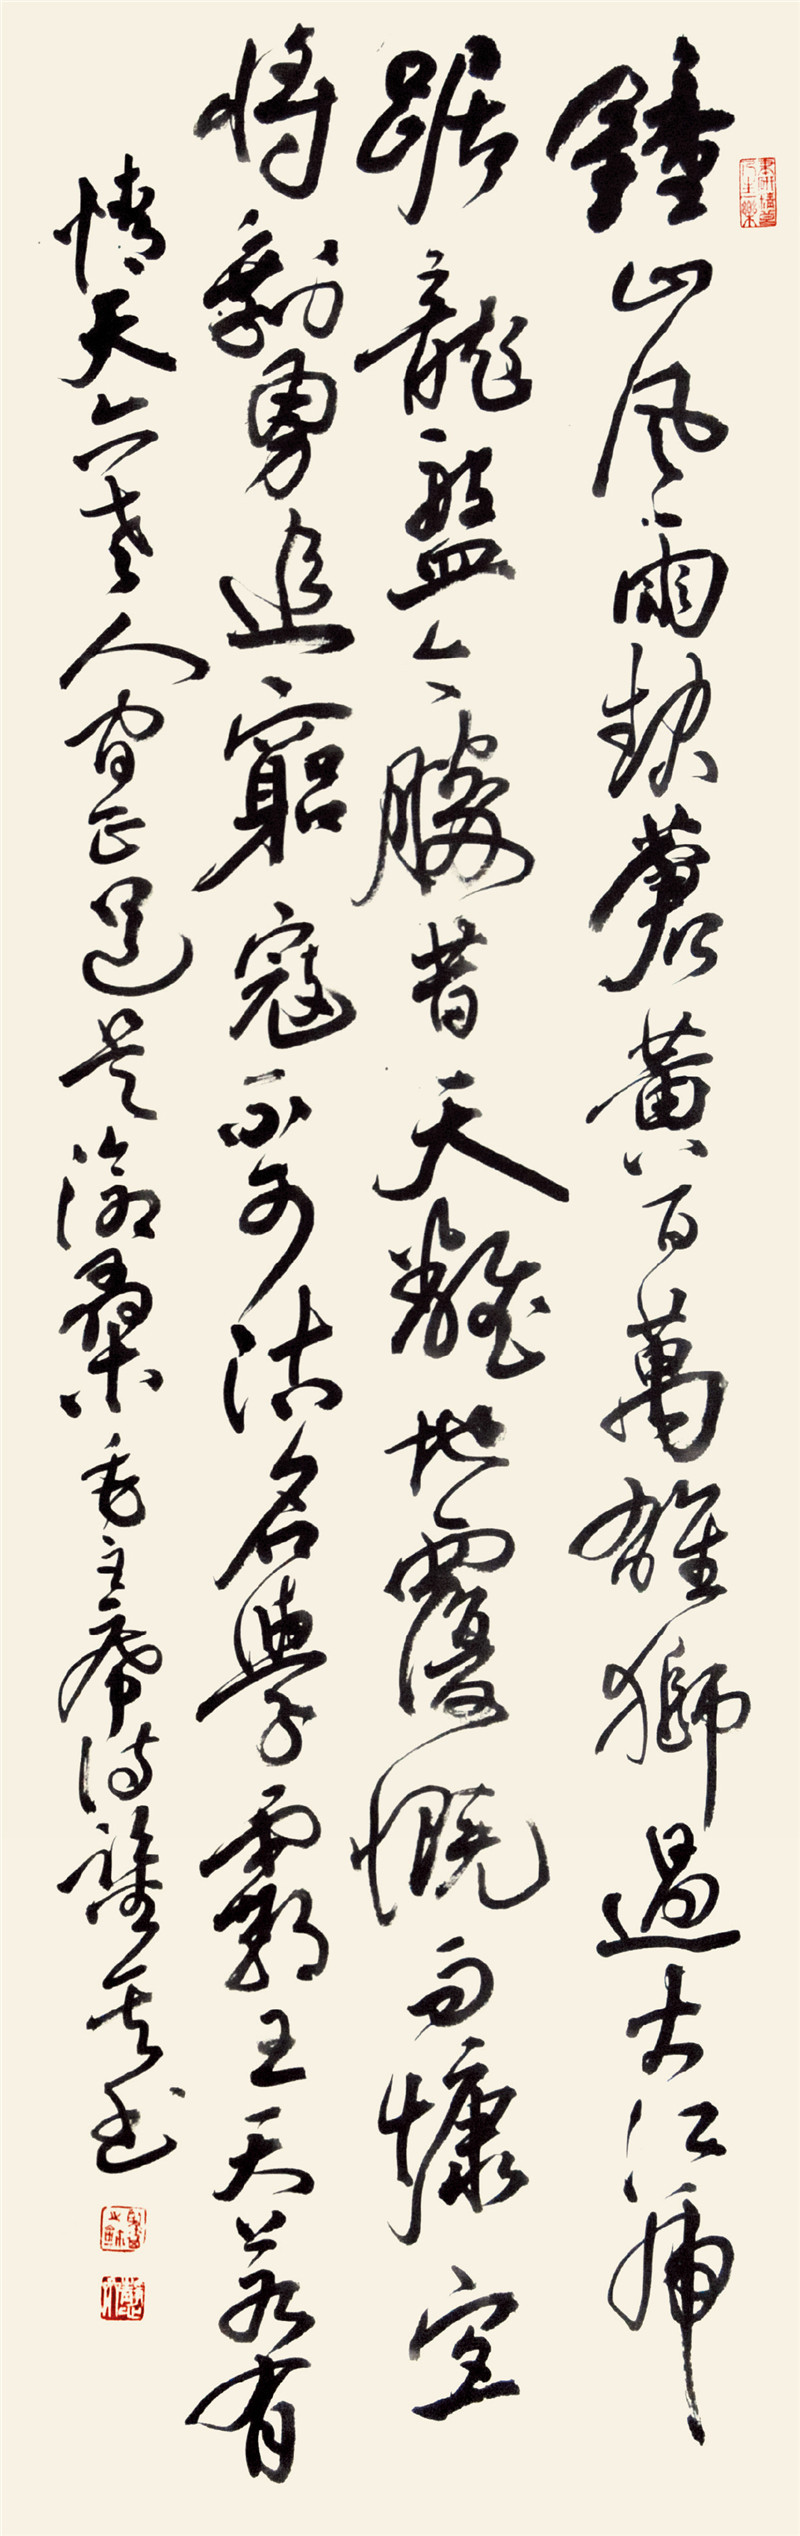 鍾山風雨起蒼黃百萬雄獅過大江虎
踞龍盤今勝昔天翻地覆慨而慷宜
將剩勇追窮寇不可沽名學霸王天若有
情天亦老人間正道是滄桑毛主席詩書